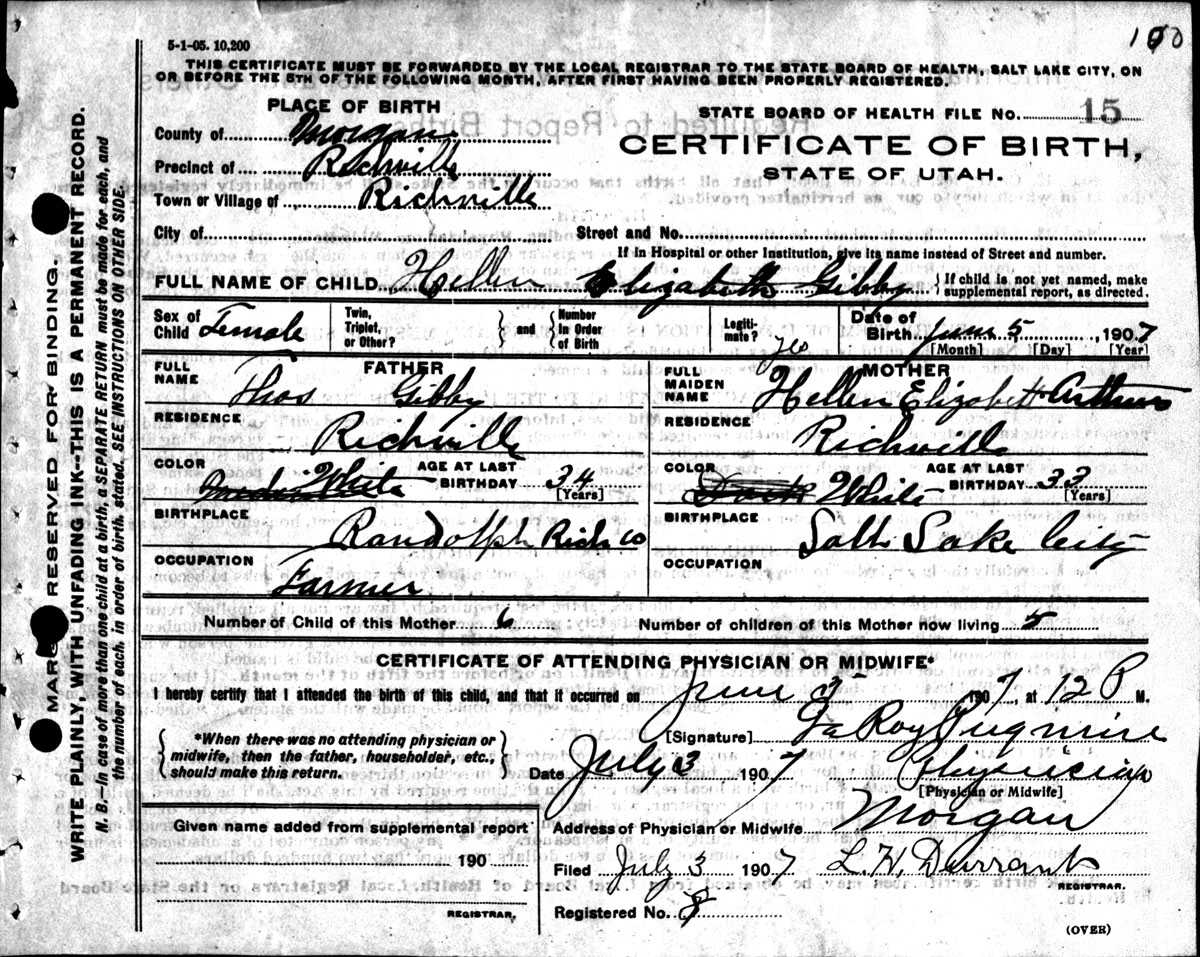 100
5-1-05. 10,200
THIS CERTIFICATE MUST BE FORWARDED BY THE LOCAL REGISTRAR TO THE STATE BOARD OF HEALTH, SALT LAKE CITY, ON
OR BEFORE THE 5TH OF THE FOLLOWING MONTH, AFTER FIRST HAVING BEEN PROPERLY REGISTERED.
PLACE OF BIRTH
County of Morgan
Precinct of Richville
Town or Village of Richville
STATE BOARD OF HEALTH FILE NO. 15
CERTIFICATE OF BIRTH,
STATE OF UTAH.
City of Street and No.
If in Hospital or other Institution, give its name instead of Street and number.
FULL NAME OF CHILD Hellen Elizabeth Gibby { If child is not yet named, make supplemental report, as directed.
Sex of Child Female Twin, Triplet, or Other? } and { Number In Order of Birth Legiti-mate? yes Date of Birth June 5, 1907
[Month] [Day] [Year]
FATHER
FULL NAME Thos Gibby
RESIDENCE Richville
COLOR White AGE AT LAST BIRTHDAY 34 [Years]
BIRTHPLACE Randolph Rich co
OCCUPATION Farmer
MOTHER
FULL MAIDEN NAME Hellen Elizabeth Arthurs
RESIDENCE Richville
COLOR Dark White AGE AT LAST BIRTHDAY 33 [Years]
BIRTHPLACE Salt Lake City
OCCUPATION
Number of Child of this Mother 6 Number of children of this Mother now living 5
CERTIFICATE OF ATTENDING PHYSICIAN OR MIDWIFE*
I hereby certify that I attended the birth of this child, and that it occurred on June 5 1907, at 12 P M.
{ *When there was no attending physician or
midwife, then the father, householder, etc.,
should make this return. }
[Signature] LaRoy Pugmire
Date July 3 1907 Physician
[Physician or Midwife]
Address of Physician or Midwife Morgan
Given name added from supplemental report
190
REGISTRAR.
Filed July 3 1907 L. H. Durrant
REGISTRAR.
Registered No. 8
(OVER)
MARGIN RESERVED FOR BINDING.
WRITE PLAINLY, WITH UNFADING INK--THIS IS A PERMANENT RECORD.
N. B.--In case of more than one child at a birth, a SEPARATE RETURN must be made for each, and
the number of each, in order of birth, stated. SEE INSTRUCTIONS ON OTHER SIDE.